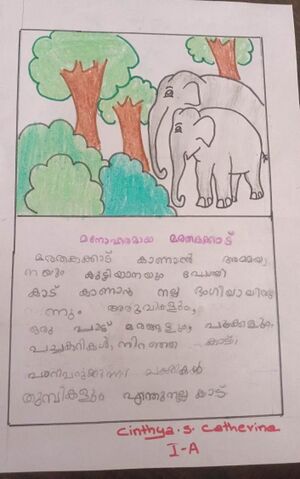 മനോഹരമായ മരതകക്കാട്
മരതകക്കാട് കാണാൻ അമ്മയാ
നയും കുട്ടിയാനയും പോയി
കാട് കാണാൻ നല്ല ഭംഗിയായിരു
ന്നു. അരുവികളും,
ഒരു പാട് മരങ്ങളും, പൂക്കളും,
പച്ചക്കറികൾ, നിറഞ്ഞ കാട്.
പക്ഷികൾ
തുമ്പികളും എന്തുനല്ല കാട്.
Cinthya. S. Catherine
I-A